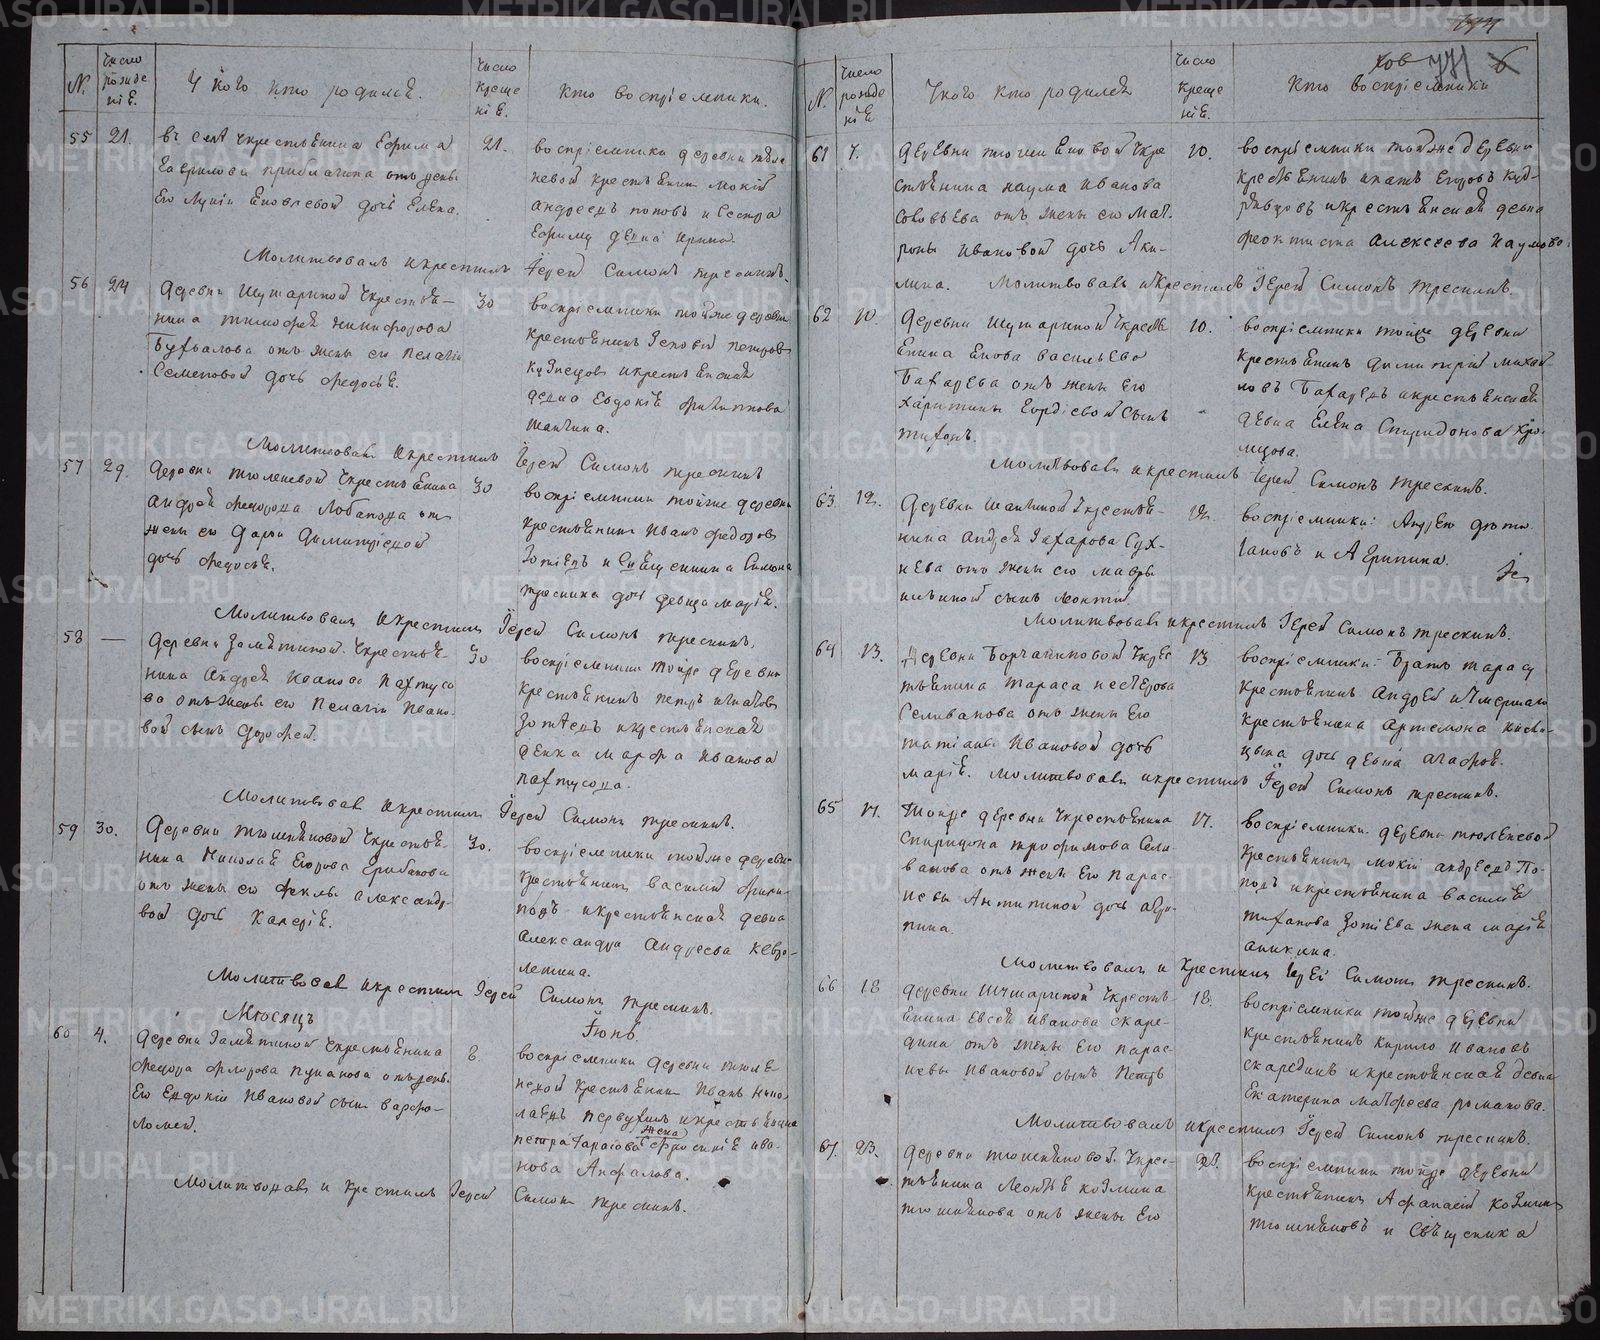 №.
Число рожде нія.
У кого кто родился.
Число креще нія.
Кто воспріемники.
55
21.
въ селѣ Укрестьянина Ефрима
Гаврилова
отъ жены
Его Лукіи Яковлевой дочь Елена.
21.
воспріемники деревни тюле
невой крестьянинъ Мокій
Андреевъ Поповъ и Сестра
Ефрему девка Ирина.
Молитвовалъ и крестилъ Іерей Симонъ Трескинъ.
56
24
Деревни Шутариной Укрестья-
нина Тимофея Никифорова
отъ жены его Пелагіи
Семеновой дочь Федосья.
30
воспріемники тойже деревни
крестьянинъ Іеновій Петровъ
Кузнецовъ и крестьянская
девка Евдокія Филиппова
Шангина.
Молитвовалъ и крестилъ Іерей Симонъ Трескинъ
57
29.
Деревни тюленевой Укрестьянина
Андрея Федорова Лобанова от
жены его Дарьи Димитріевой
дочь Федосья.
30
воспріемники тойже деревни
крестьянинъ Иванъ Федоровъ
Зотѣевъ и Священника Симона
Трескина дочь девица Марія.
Молитвовалъ и крестилъ Іерей Симонъ Трескинъ.
58
—
Деревни Замятиной Укрестья-
нина Андрея Иванова Пахтусо
ва отъ жены его Пелагіи Ивано-
вой сынъ Дорофей.
30
воспріемники тойже деревни
крестьянинъ Петръ Игнатовъ
Зотѣевъ и крестьянская
девка Марфа Иванова
Пахтусова.
Молитвовалъ и крестилъ Іерей Симонъ Трескинъ.
59
30.
Деревни тюшняковой Укрестья-
нина Николая Егорова Грибанова
отъ жены его Феклы Александро-
вой дочь Калерія.
30.
воспріемники тойже деревни
крестьянинъ Василій Филип-
повъ и крестьянская девка
Александра Андреева Кевро-
летина.
Молитвовалъ и крестилъ Іерей Симонъ Трескинъ.
Мѣсяцъ Іюнь.
60
4.
Деревни Замятиной Укрестьянина
Федора Флорова Пуканова отъ жены
Его Евдокіи Ивановой сынъ Варфо-
ломей.
6.
воспріемники деревни тюле
невой крестьянинъ Иванъ Нико-
лаевъ Первухинъ и крестьянина
Петра Тарасова жена Ефросинія Ива-
нова Анфалова.
Молитвовалъ и крестилъ Іерей Симонъ Трескинъ.
771
№.
Число рожде нія
Укого кто родился
Число креще нія.
Кто воспріемники
61
7.
Деревни тюшняковой Укре
стьянина Наума Иванова
Соловьева отъ жены его Мат-
роны Ивановой дочь Аки-
лина.
10.
воспріемники тойже деревни
крестьянинъ Игнатъ Егоровъ Куд-
рявцовъ и крестьянская девка
Феоктиста Алексеева Наумова.
Молитвовалъ и крестилъ Іерей Симонъ Трескинъ.
62
10.
Деревни Шутариной Укресть
янина Якова Васильева
Бахарева отъ жены Его
Харитины Гордіевой сынъ
Тихонъ.
10.
воспріемники тойже деревни
крестьянинъ Димитрій Михай-
ловъ Бахаревъ и крестьянская
девка Елена Спиридонова Хро-
мцова.
Молитвовалъ и крестилъ Іерей Симонъ Трескинъ.
63
12.
Деревни Шангиной Укрестья-
нина Андрея Захарова Сух-
нева отъ жены его Мавры
Ильиной сынъ Леонтій
12.
воспріемники: Андрею
и Агрипина.
Молитвовалъ и крестилъ Іерей Симонъ Трескинъ.
64
13.
Деревни Борчаниновой Укрес
тьянина Тараса Нестерова
Селиванова отъ жены Его
Татіаны Ивановой дочь
Марія.
13
воспріемники: Братъ Тарасу
крестьянинъ Андрей и Умершаго
крестьянина Артемона
дочь девка Агафья.
Молитвовалъ и крестилъ Іерей Симонъ Трескинъ.
65
17.
Тойже деревни Укрестьянина
Спиридона Трофимова Сели-
ванова отъ жены Его Парас-
кевы Антипиной дочь Агри-
пина.
17.
воспріемники: деревни тюленевой
крестьянинъ Мокій Андреевъ По-
повъ и крестьянина Василія
Тиханова Зотіева жена Марія
Аникина.
Молитвовалъ и крестилъ Іерей Симонъ Трескинъ.
66
18
Деревни Шутариной Укресть-
янина Евсея Иванова Скаре-
дина отъ жены Его Парас-
кевы Ивановой сынъ Петръ
18.
воспріемники тойже деревни
крестьянинъ Кирило Ивановъ
Скарединъ и крестьянская девка
Екатерина Матфеева Романова.
Молитвовалъ и крестилъ Іерей Симонъ Трескинъ.
67.
23.
Деревни тюшняковой Укрес-
тьянина Леонтья Козмина
Тюшнякова отъ жены Его
23.
воспріемники тойже деревни
крестьянинъ Афанасій Козминъ
Тюшняковъ и Священника